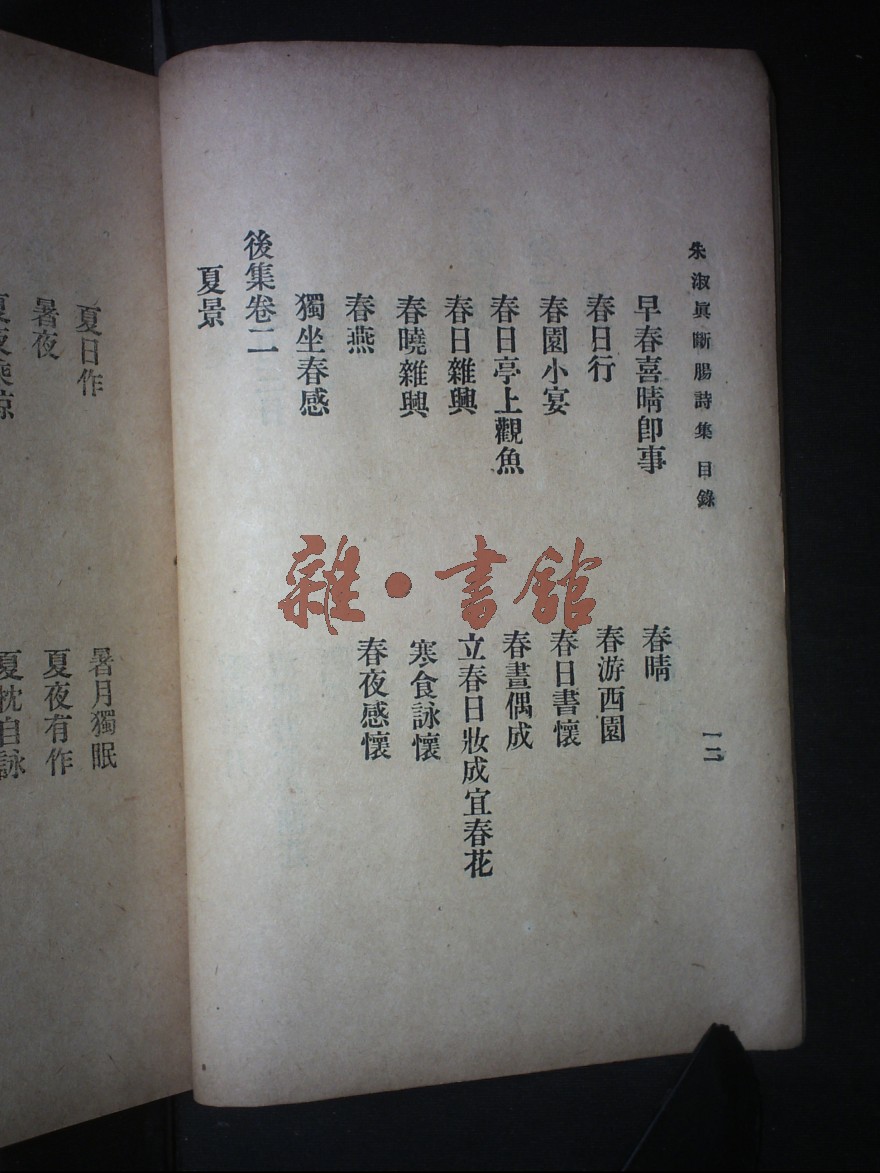 朱淑眞斷腸詩集 目錄
一二
早春喜晴卽事
春晴
春日行
春游西園
春園小宴
春日書懷
春日亭上觀魚
春晝偶成
春日雜興
立春日妝成宜春花
春曉雜興
寒食詠懷
春燕
春夜感懷
獨坐春感
後集卷二
夏景
夏日作
暑月獨眠
暑夜
夏夜有作
夏夜乘涼
夏枕自詠
雜·書館